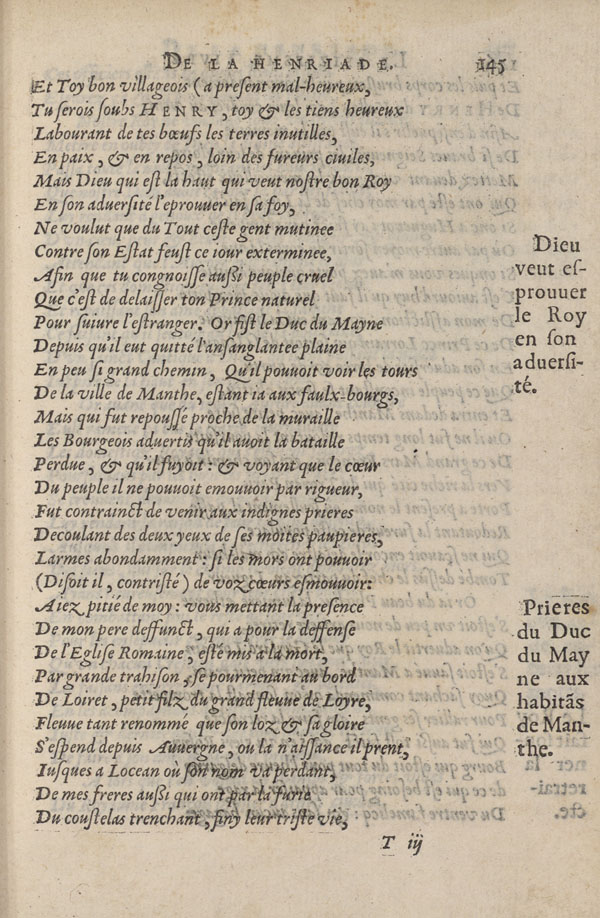 DE LA HENRIADE. 145
Et Toy bon villageois (a present mal-heureux,
Tu serois soubs HENRY, toy & les tiens heureux
Labourant de tes bœufs les terres inutilles,
En paix, & en repos, loin des fureurs ciuiles,
Mais Dieu qui est la haut qui veut nostre bon Roy
En son adversité l'eprouuer en sa foy,
Ne voulut que du Tout ceste gent mutinee
Contre son Estat feust ce iour exterminee,
Afin que tu congnoisse aussi peuple cruel
Que c'est de delaisser ton Prince naturel
Pour suiure l'estranger. Or fist le Duc du Mayne
Depuis qu'il eut quitté l'ansanglantee plaine
En peu si grand chemin, Qu'il pouvoit voir les tours
De la ville de Manthe, estant ia aux faulx-bourgs,
Mais qui fut repoussé proche de la muraille
Les Bourgeois aduertis qu'il auoit la bataille
Perdue, & qu'il fuyoit: & voyant que le cœur
Du peuple il ne pouuoit emouuoir par rigueur,
Fut contrainct de venir aux indignes prieres
Decoulant des deux yeux de ses moites paupieres,
Larmes abondamment: si les mors ont pouuoir
(Disoit il, contristé) de voz cœurs esmouuoir:
Aiez pitié de moy: vous mettant la presence
De mon pere deffunct, qui a pour la deffense
De l'Eglise Romaine, esté mis a la mort,
Par grande trahison, se pourmenant au bord
De Loiret, petit filz du grand fleuue de Loyre,
Fleuue tant renommé que son loz & sa gloire
S'espend depuis Auuergne, ou la n'aissance il prent,
Iusques a Locean où son nom va perdant,
De mes freres aussi qui ont par la furie
Du coustelas trenchant, finy leur triste vie,
T iij
Dieu
veut es-
prouuer
le Roy
en son
aduersi-
té.
Prieres
du Duc
du May
ne aux
habitãs
de Man-
the.